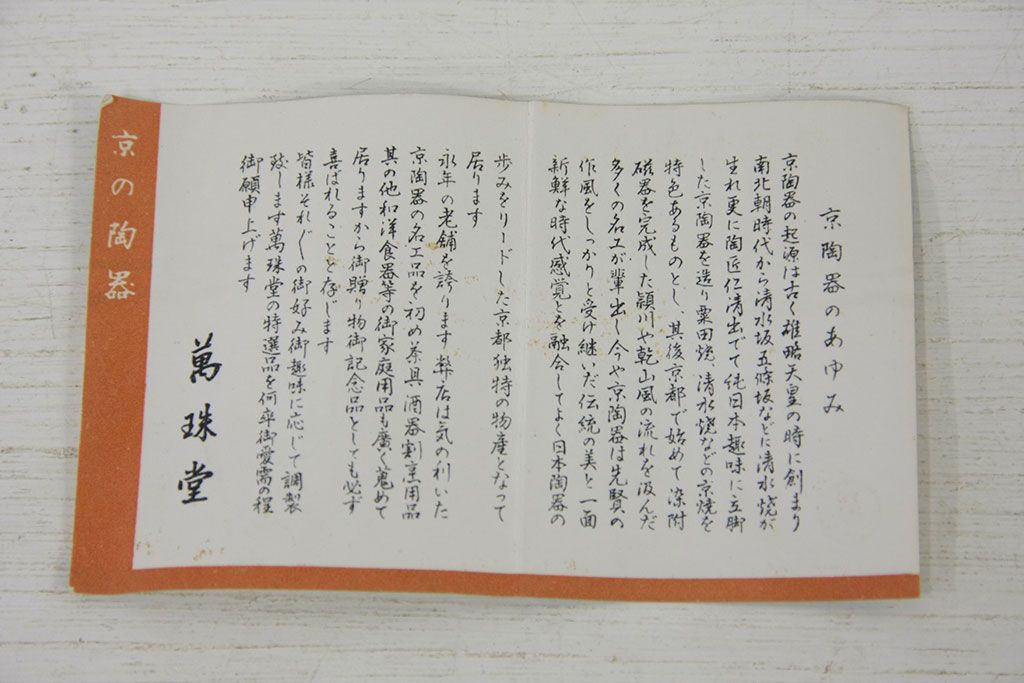 京陶器のあゆみ
京陶器の起源は古く雄略天皇の時に創まり
南北朝時代から清水坂五條坂などに清水焼が
生れ更に陶匠仁清出でて純日本趣味に立脚
した京陶器を造り粟田焼、清水焼などの京焼を
特色あるものとし、其後京都で始めて染附
磁器を完成した頴川や乾山風の流れを汲んだ
多くの名工が輩出し今や京陶器は先賢の
作風をしっかりと受け継いだ伝統の美と一面
新鮮な時代感覚とを融合してよく日本陶器の
歩みをリードした京都独特の物産となって
居ります
永年の老舗を誇ります弊店は気の利いた
京陶器の名工品を初め茶具酒器割烹用品
其の他和洋食器等の御家庭用品も廣く蒐めて
居りますから御贈り物御記念品としても必ず
喜ばれることと存じます
皆様それ〴〵の御好み御趣味に応じて調製
致します萬珠堂の特選品を何卒御愛需の程
御願申上げます
萬珠堂
京の陶器